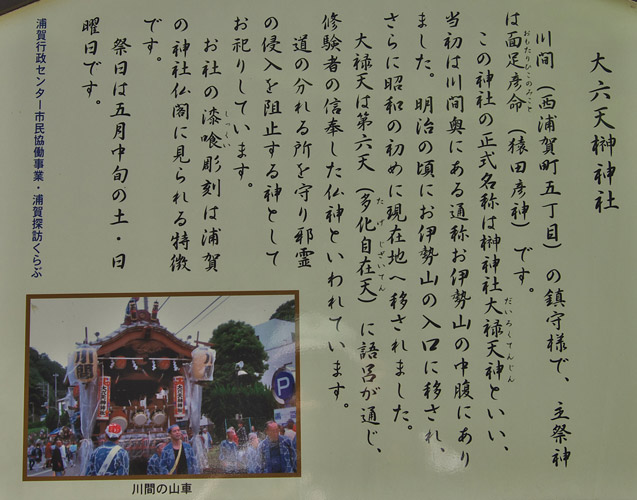 大六天榊神社
川間（西浦賀町五丁目）の鎮守様で、主祭神
は面足彦命（猿田彦神）です。
おもたりひこのみこと
この神社の正式名称は榊神社大禄天神といい、
だいろくてんじん
当初は川間奥にある通称お伊勢山の中腹にあり
ました。明治の頃にお伊勢山の入口に移され、
さらに昭和の初めに現在地へ移されました。
大禄天は第六天（多化自在天）に語呂が通じ、
たげじざいてん
修験者の信奉した仏神といわれています。
道の分れる所を守り邪霊
の侵入を阻止する神として
お祀りしています。
お社の漆喰彫刻は浦賀
しっくい
の神社仏閣に見られる特徴
です。
祭日は五月中旬の土・日
曜日です。
浦賀行政センター市民協働事業・浦賀探訪くらぶ
川間
P
川間の山車